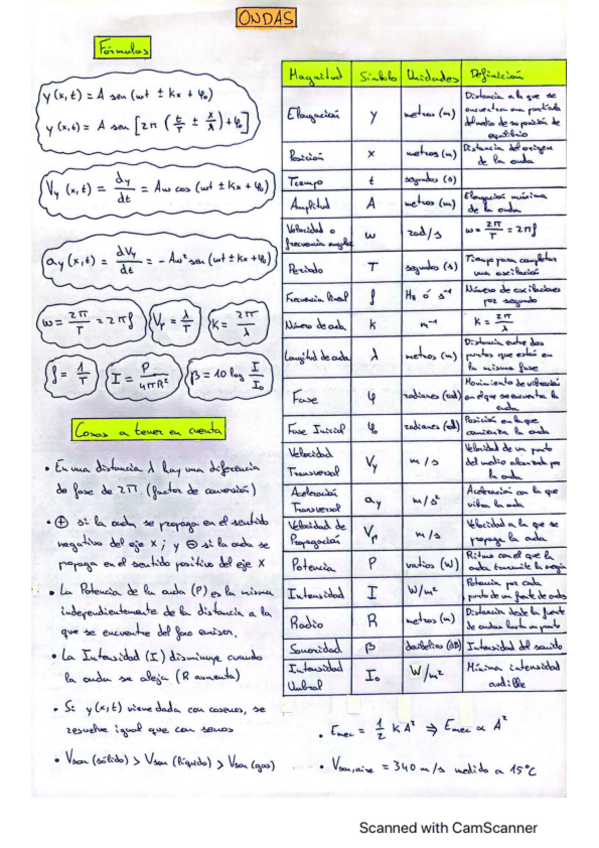 ONDAS
Fórmulas
y(x,t) = A sen (ωt ± Kx + φ₀)
y(x,t) = A sen [2π (t/T ± x/λ) + φ₀]
Vy (x,t) = dy/dt = Aω cos (ωt ± Kx + φ₀)
ay(x,t) = dVy/dt = -Aω² sen (ωt ± Kx + φ₀)
ω = 2π/T = 2πf
Vp = λ/T
K = 2π/λ
f = 1/T
I = P/4πR²
β = 10 log I/I₀
Cosas a tener en cuenta
• En una distancia λ hay una diferencia
de fase de 2π. (factor de conversión)
• ⊕ si la onda se propaga en el sentido
negativo del eje x; y ⊖ si la onda se
propaga en el sentido positivo del eje X
• La Potencia de la onda (P) es la misma
independientemente de la distancia a la
que se encuentre del foco emisor.
• La Intensidad (I) disminuye cuando
la onda se aleja (R aumenta)
• Si y(x,t) viene dada con cosenos, se
resuelve igual que con senos
• Vson (sólido) > Vson (líquido) > Vson (gas)
Magnitud Símbolo Unidades Definición
Elongación y metros (m) Distancia a la que se
encuentra una partícula
del medio de su posición de
equilibrio
Posición x metros (m) Distancia del origen
de la onda
Tiempo t segundos (s)
Amplitud A metros (m) Elongación máxima
de la onda
Velocidad o
frecuencia angular ω rad/s ω = 2π/T = 2πf
Periodo T segundos (s) Tiempo para completar
una oscilación
Frecuencia lineal f Hz ó s⁻¹ Número de oscilaciones
por segundo
Número de onda K m⁻¹ K = 2π/λ
Longitud de onda λ metros (m) Distancia entre dos
puntos que están en
la misma fase
Fase φ radianes (rad) Movimiento de vibración
en el que se encuentra la
onda
Fase Inicial φ₀ radianes (rad) Posición en la que
comienza la onda
Velocidad
Transversal Vy m/s Velocidad de un punto
del medio alcanzado por
la onda
Aceleración
Transversal ay m/s² Aceleración con la que
vibra la onda
Velocidad de
Propagación Vp m/s Velocidad a la que se
propaga la onda
Potencia P vatios (W) Ritmo con el que la
onda transmite la energía
Intensidad I W/m² Potencia por cada
punto de un frente de ondas
Radio R metros (m) Distancia desde la fuente
de ondas hasta un punto
Sonoridad β decibelios (dB) Intensidad del sonido
Intensidad
Umbral I₀ W/m² Mínima intensidad
audible
• Emec = 1/2 KA² ⇒ Emec ∝ A²
• Vson,aire = 340 m/s medido a 15°C
Scanned with CamScanner